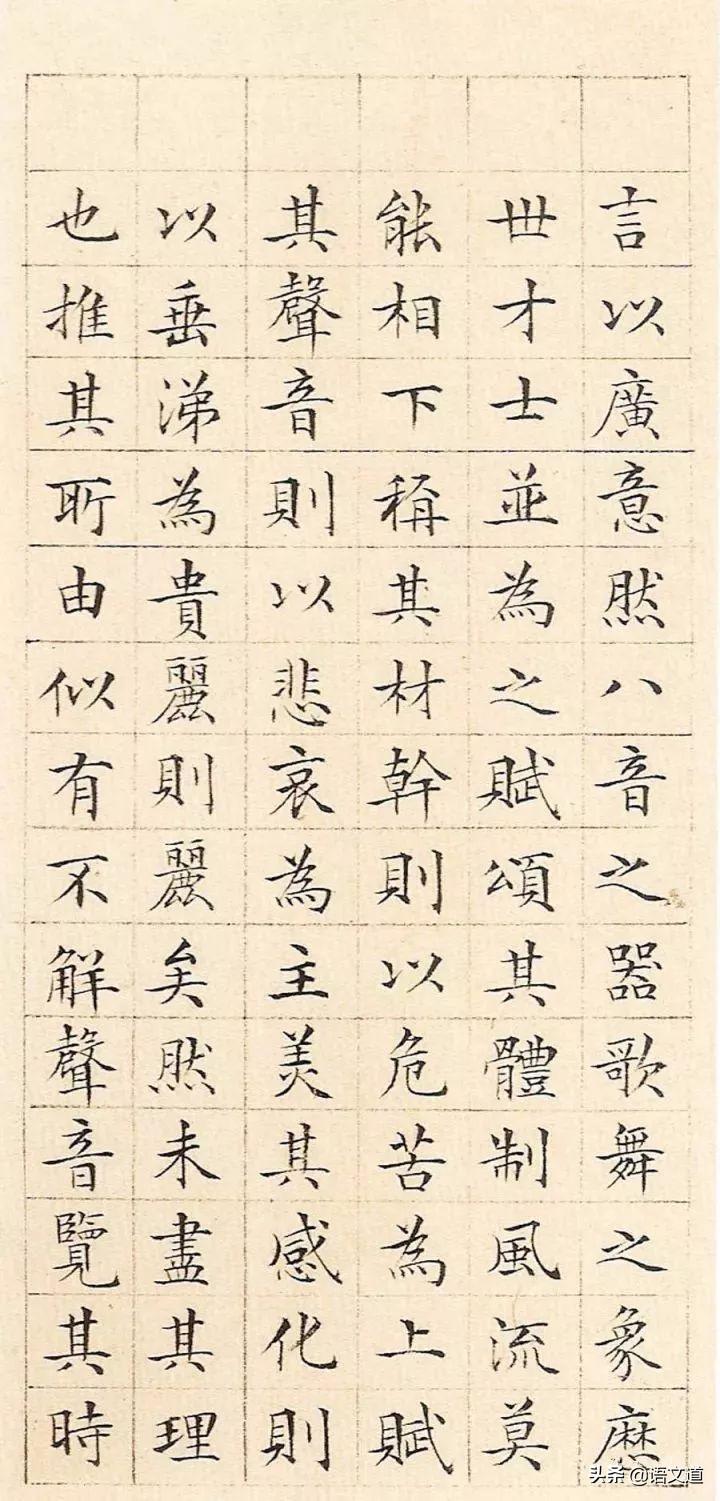 言以廣意然八音之器歌舞之象歷
世才士並為之賦頌其體制風流莫
能相下稱其材幹則以危苦為上賦
其聲音則以悲哀為主美其感化則
以垂涕為貴麗則麗矣然未盡其理
也推其所由似有不解聲音覽其時
头条 @语文道